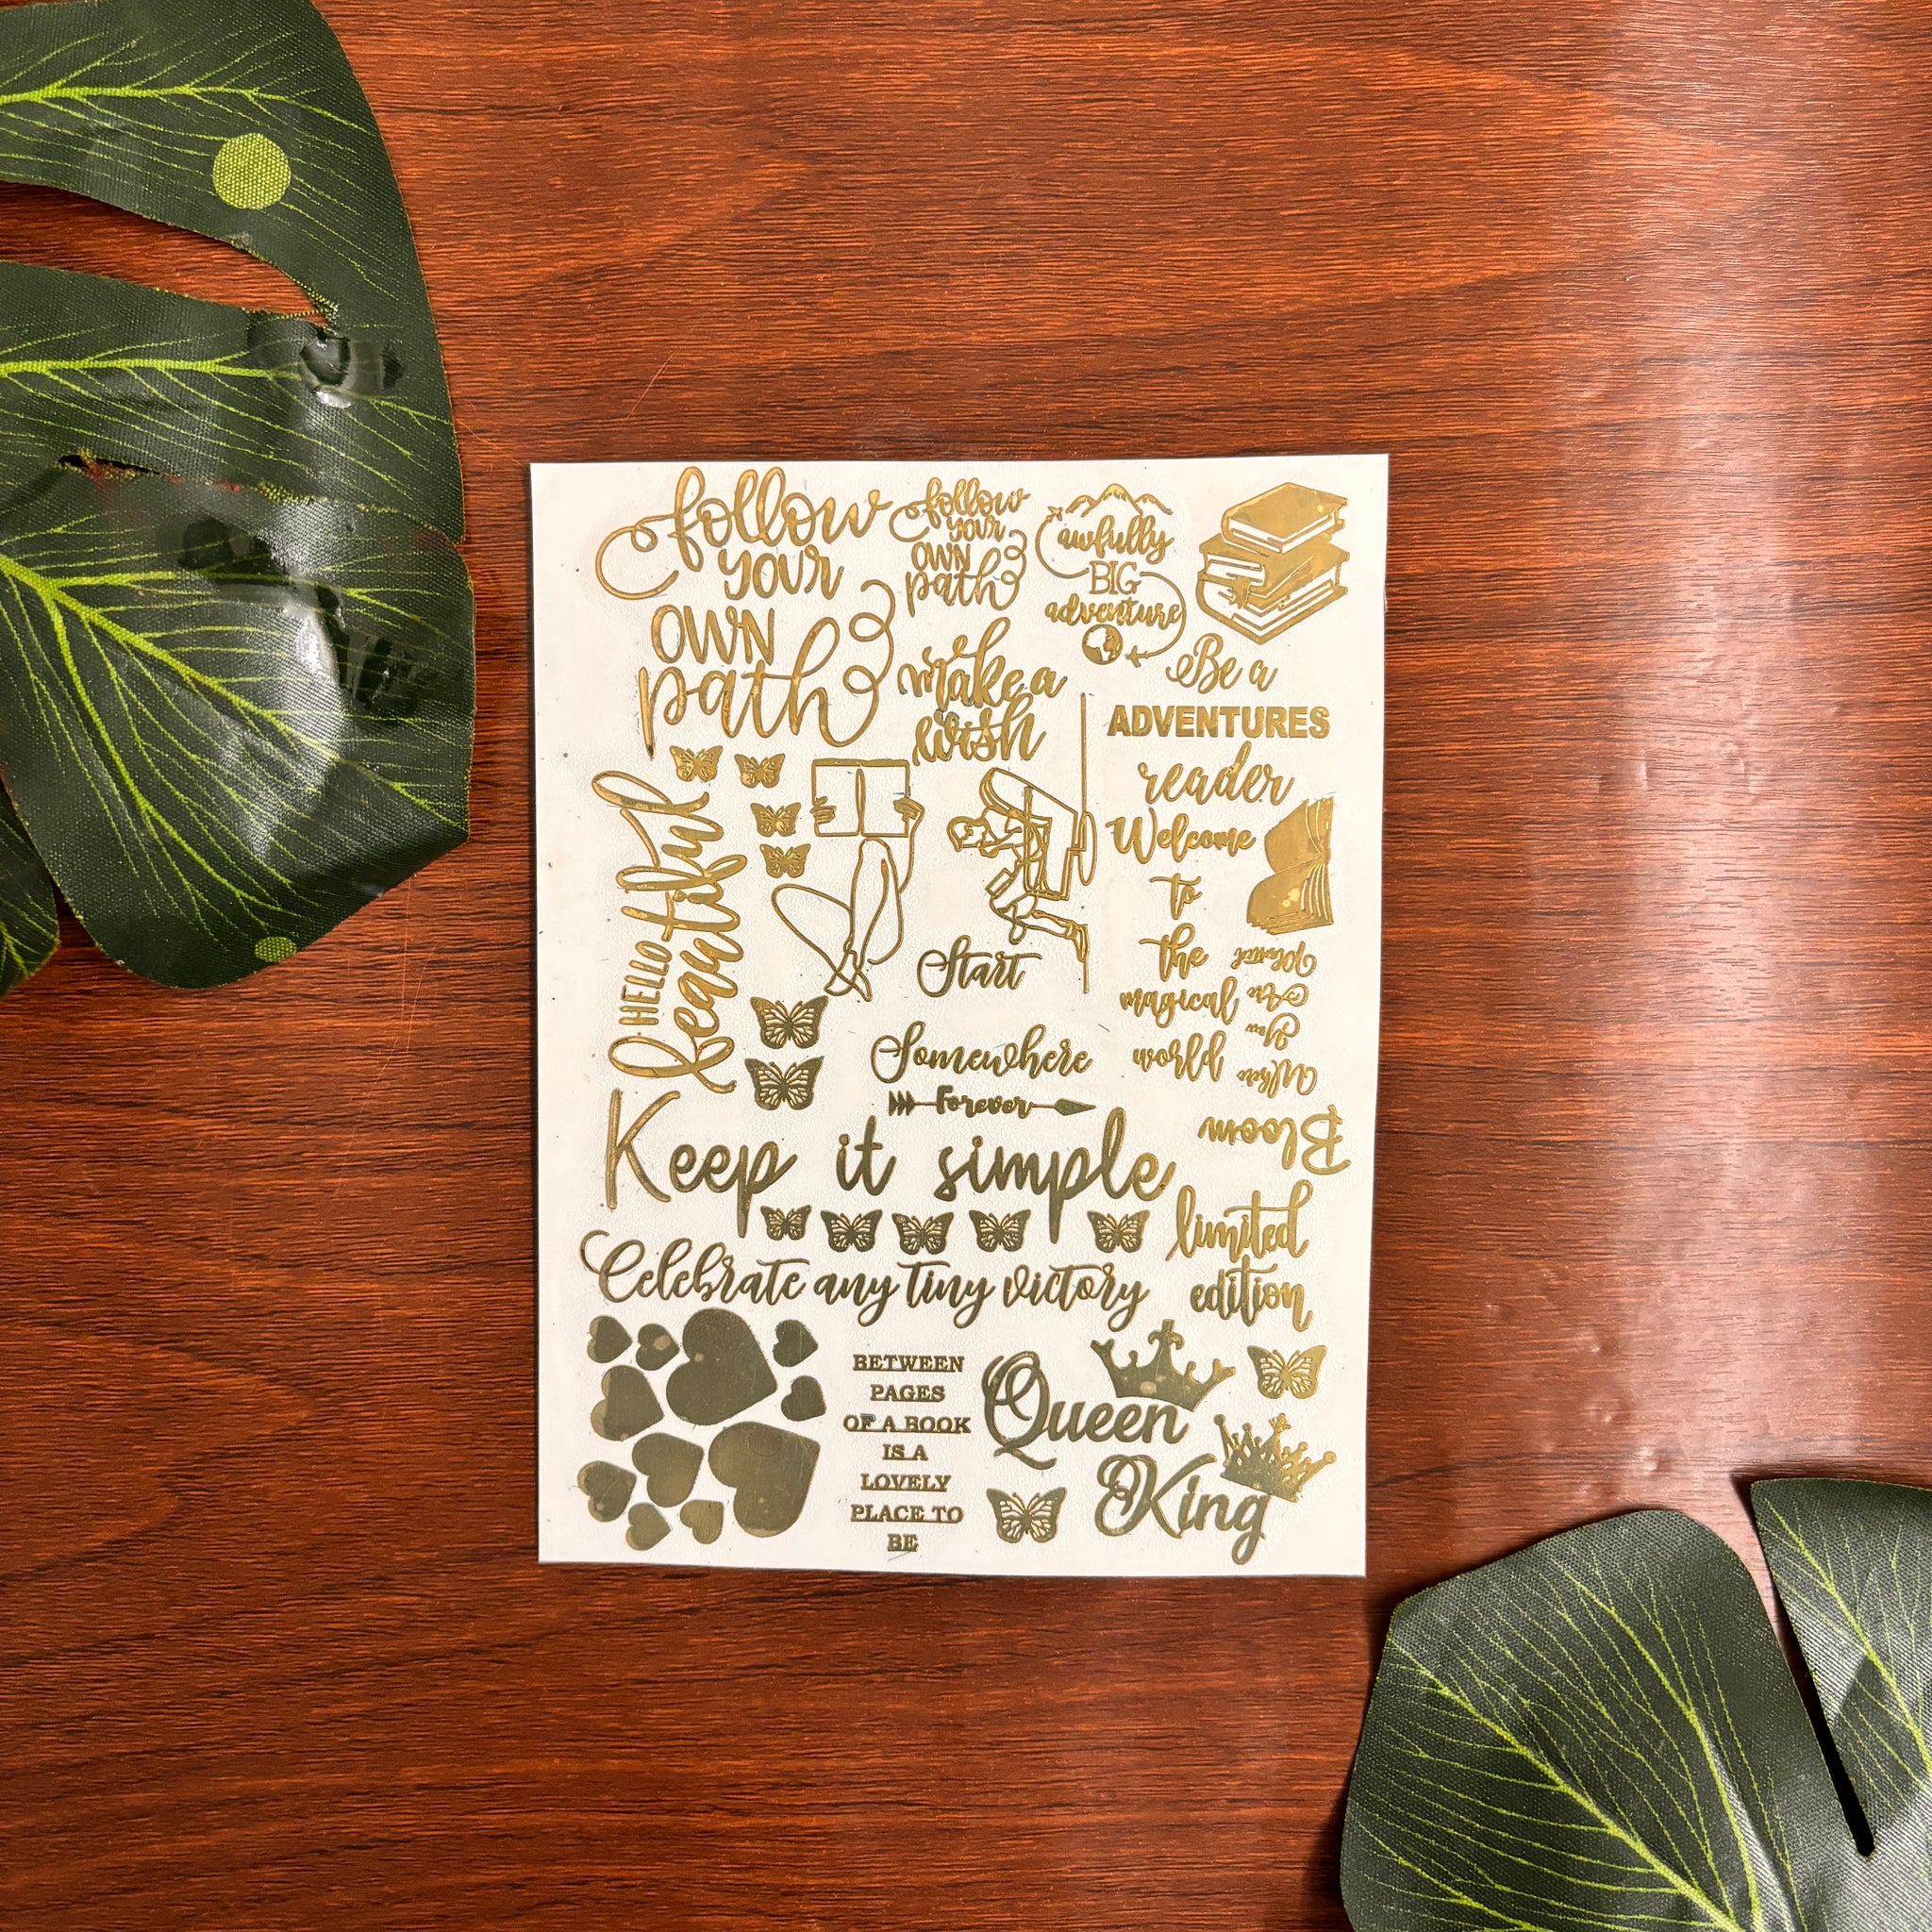 follow
your
OWN
path
follow
your
OWN
path
awfully
BIG
adventure
make a
wish
Be a
ADVENTURES
reader
Welcome
to
the
magical
world
HELLO
beautiful
Start
Somewhere
Forever
Bloom
Where
You
Are
Planted
Keep it simple
limited
edition
Celebrate any tiny victory
BETWEEN
PAGES
OF A BOOK
IS A
LOVELY
PLACE TO
BE
Queen
King